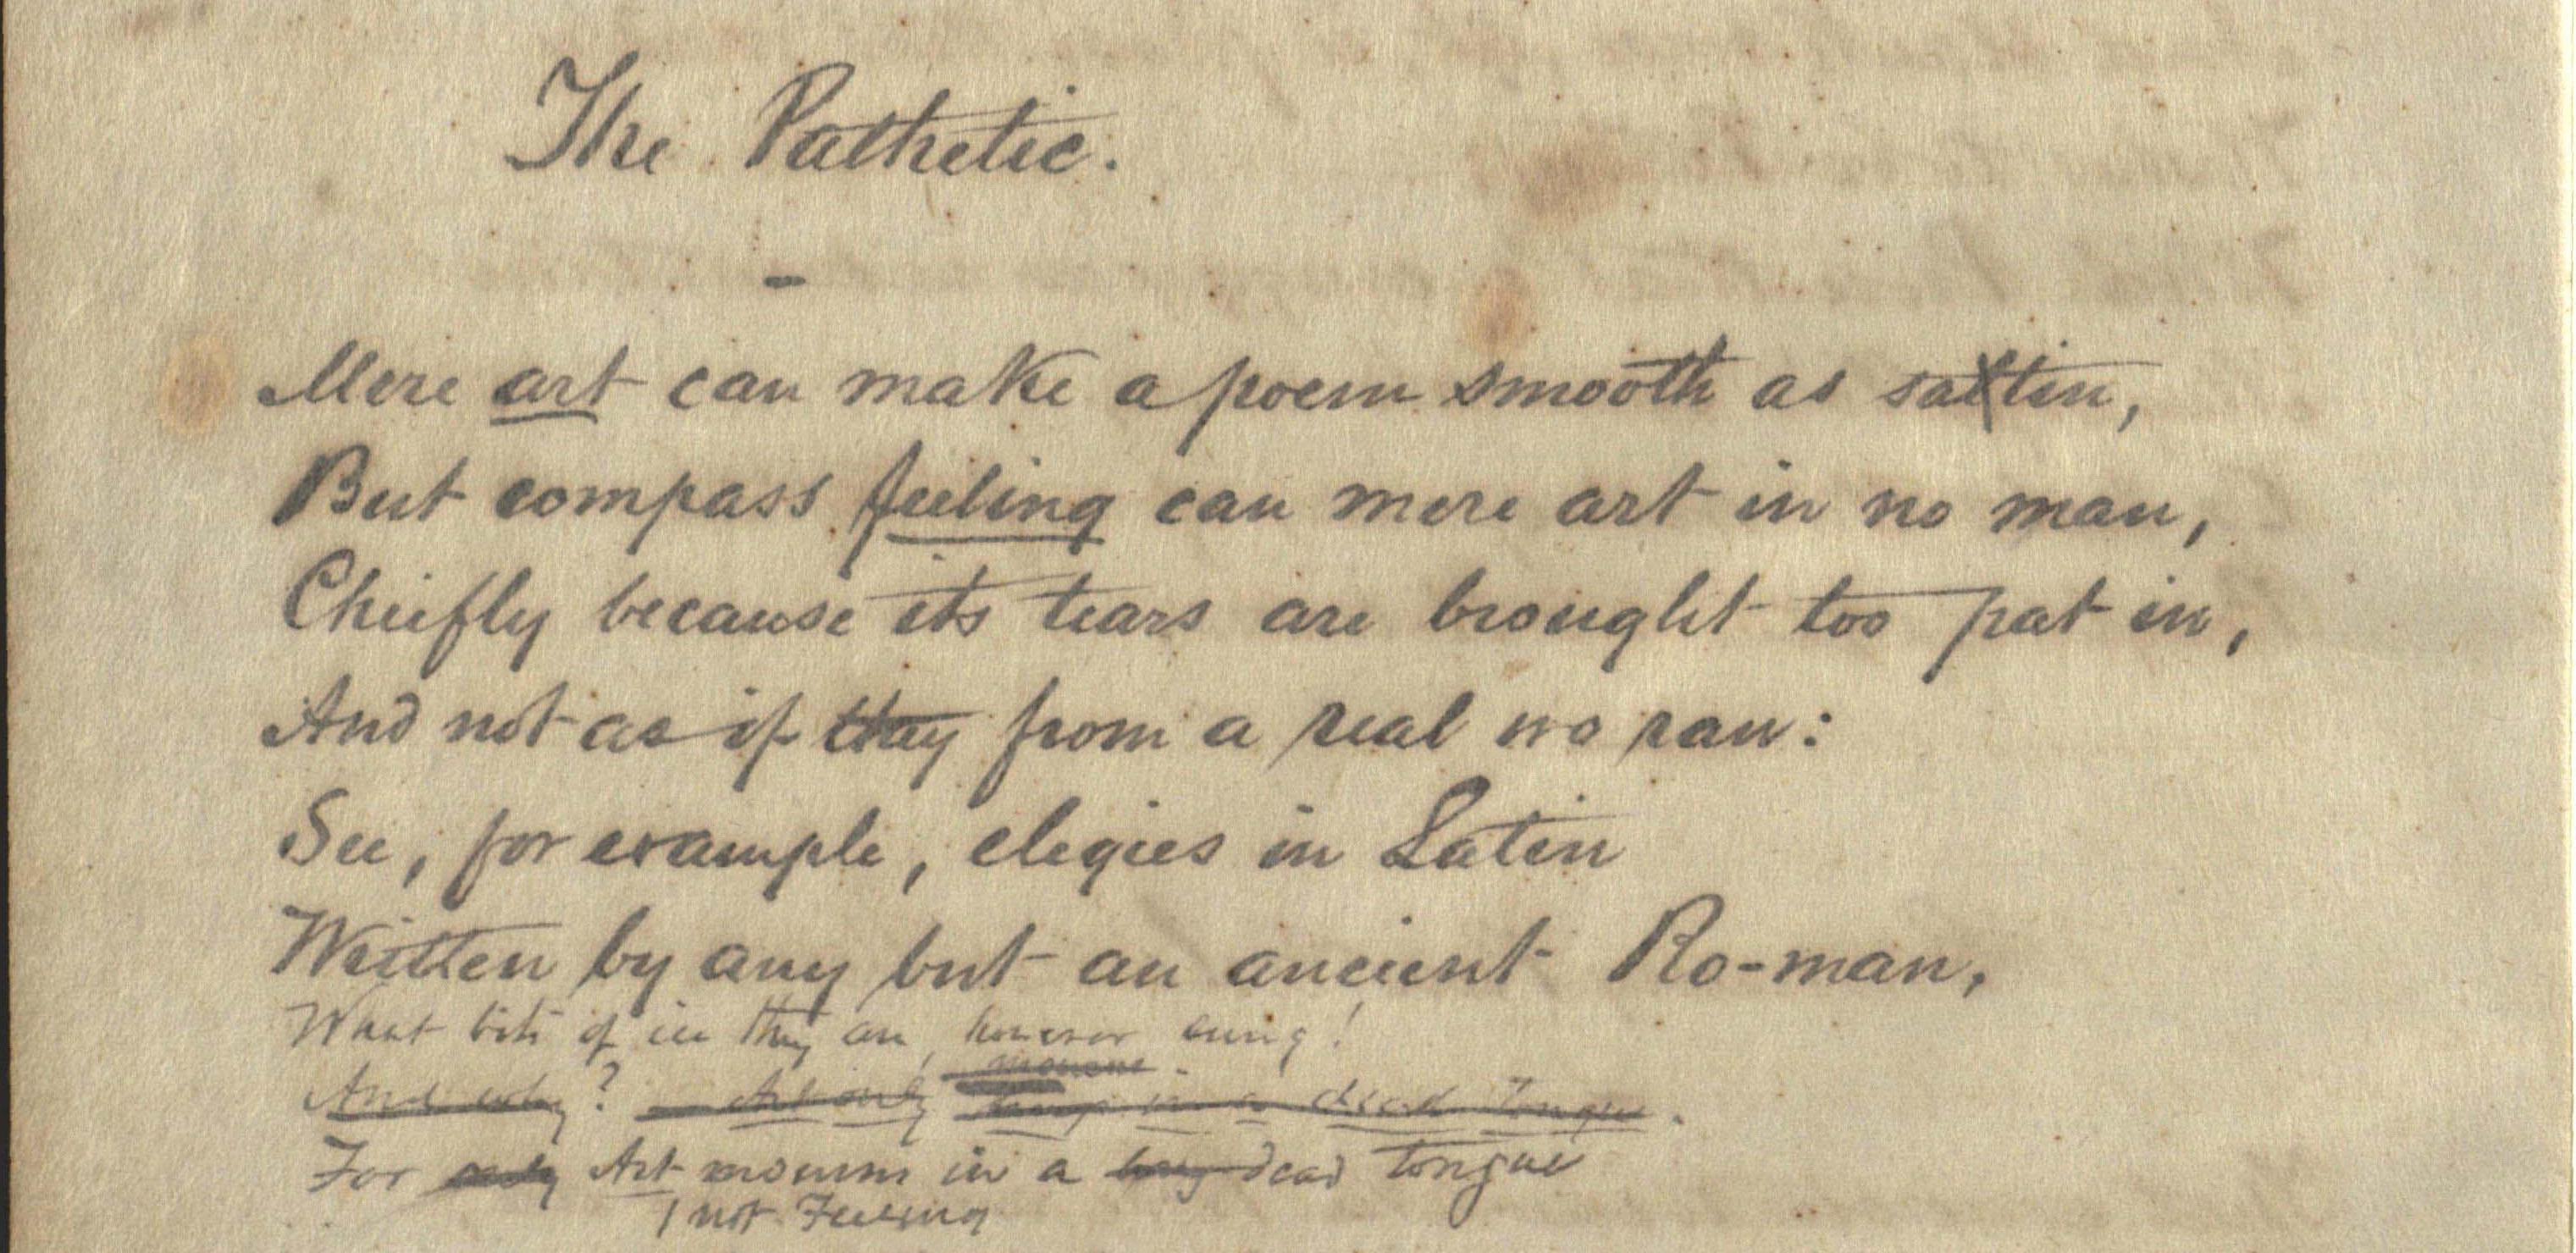 The Pathetic.
Mere art can make a poem smooth as sattin,
But compass feeling can mere art in no man,
Chiefly because its tears are brought too pat in,
And not as if they from a real wo ran:
See, for example, elegies in Latin
Written by any but an ancient Ro-man,
What bits of ice they are, however sung!
mourns
And why? — Art only in a dead tongue.
For only Art mourns in a long dead tongue
, not Feeling